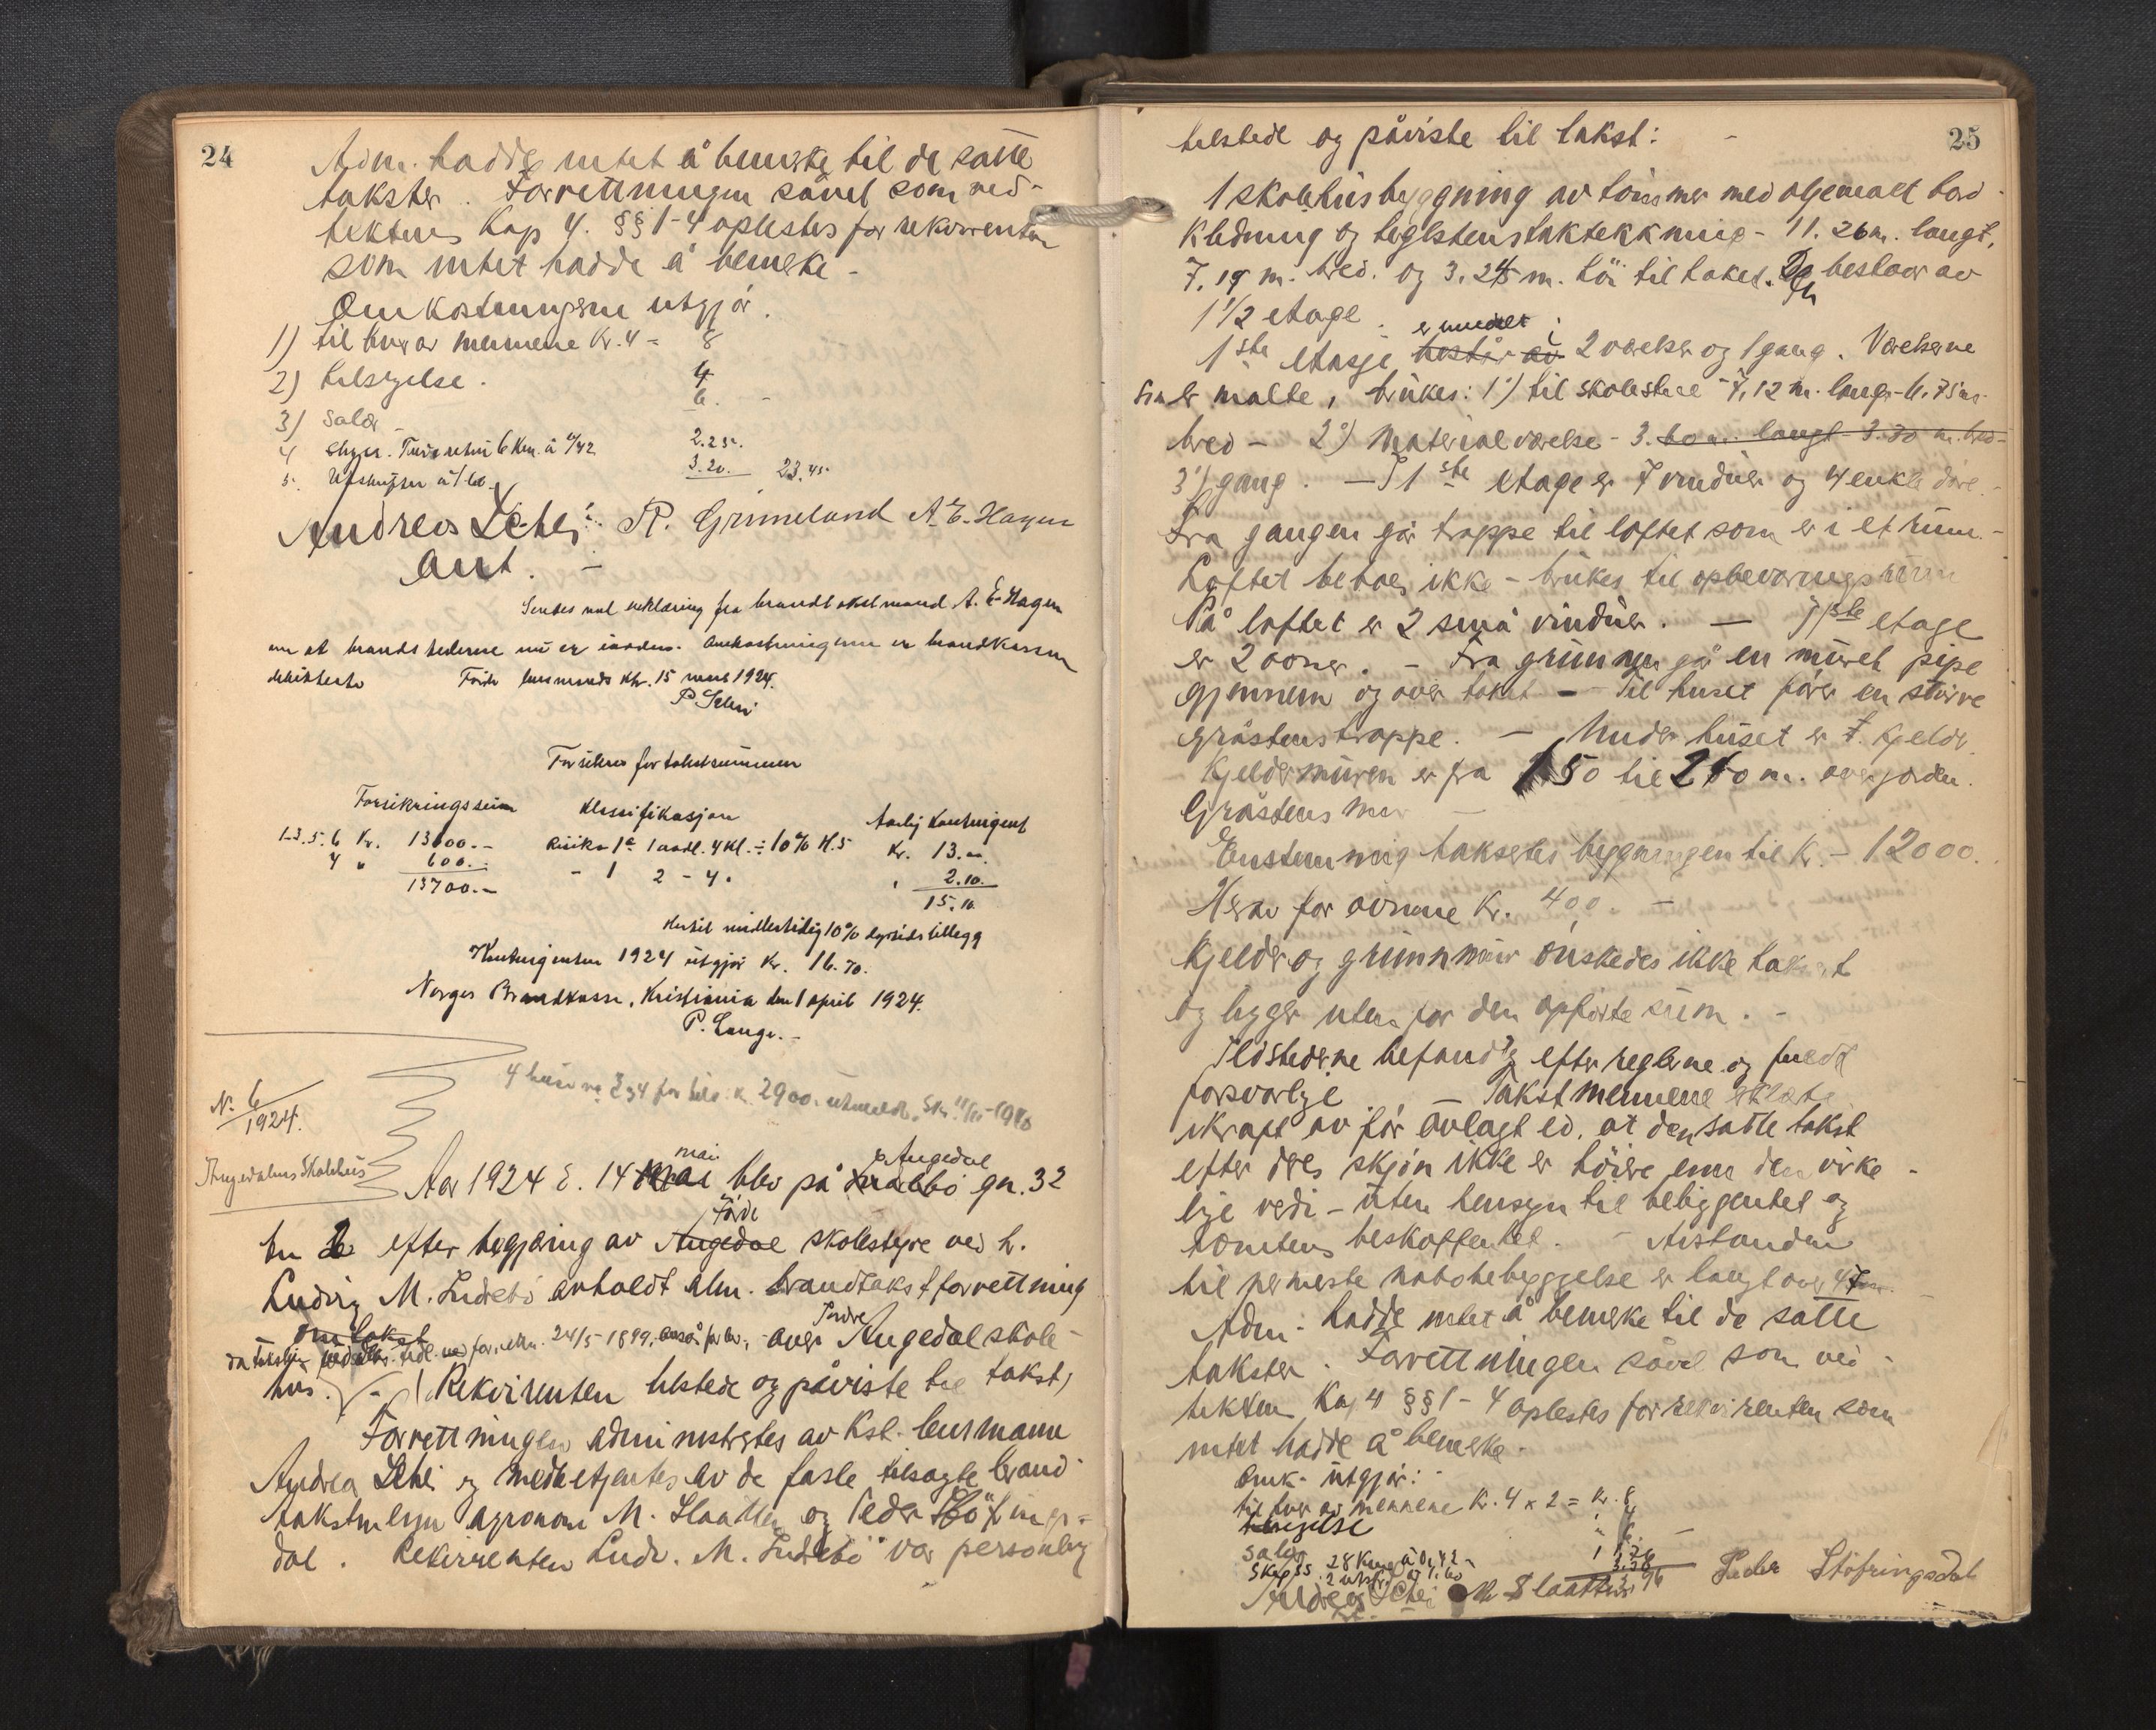 24
Adm. hadde intet å bemerke til de satte
takster. Forrettningen såvel som ved-
tektenes Kap 4. §§ 1-4 oplestes for rekvirenten
som intet hadde å bemerke -
Omkostningerne utgjör.
1) til hver av mennene Kr. 4 = 8
2) tilsigelse. 4
3) Salær - 6. -
4 Skyss. Tur retur 6 km. à 0/42 2.25.
5. Utskrifter à 1/60 3.20. 23.45
Andreas Schei R. Grimeland A. E. Hagen
Aut. -
Sendes med erklæring fra brandtakstmand A. E. Hagen
om at brandstederne nu er iorden. Omkostningerne er brandkassen
debiterte Förde lensmands ktr. 15 mars 1924.
P. Schei
Forsikres for takstsummen
Forsikringssum Klassifikasjon Aarlig Kontingent
1-3.5.6 Kr. 13100.- Risiko 1a 1 avdl. 4 kl. ÷ 10% H.5 Kr. 13.00.
4 " 600.- - 1 2 - 4 " " 2.10.
13700.- 15.10.
hertil midlertidig 10% dyrtidstillegg
Kontingenten 1924 utgjör Kr. 16.70.
Norges Brandkasse, Kristiania den 1 april 1924.
P. Lange.-
4 huse nr 3 og 4 for tils. kr. 2900. utmeldt.
No. 6
1924.
Angedalens Skolehus
Aar 1924 d. 14 mai mai blev på Angedal gn. 32
bn 2 efter begjæring av Angedal Förde skolestyre ved h.
Ludvig M. Indrebö avholdt alm. brandtakstforrettning
om takst 24/5 1899, over Indre Angedal skole-
hus. Rekvirenten tilstede og påviste til takst,
Forrettningen administrertes av Kst. lensmann
Andreas Schei og medbetjentes av de faste tilsagte brand-
takstmenn agronom M. Slaatten og Peder Stöfrings-
dal. Rekvirenten Ludv. M. Indrebö var personlig
25
tilstede og påviste til takst: -
1 skolehusbyggning av tömmer med oljemalt bord-
kledning og teglstenstaktekkning - 11.26 m. langt,
7.19 m. bred. og 3.25 m. höi til taket. Den bestaar av
1 1/2 etage.
1ste etasje består av er innredet i 2 værelser og 1 gang. Værelserne
som er malte, brukes: 1) til skolestue - 7,12 m. lang - 6,75 m.
bred - 2) Materialværelse - 3.60 m. langt - 3.30 m. bred -
3) gang. - I 1ste etage er 7 vinduer og 4 enkle döre.
Fra gangen går trappe til loftet som er i et rum. -
Loftet beboes ikke - brukes til opbevaringsrum
På loftet er 2 små vinduer. - I 1ste etage
er 2 ovner. - Fra grunnen går en muret pipe
gjennem og over taket - Til huset förer en större
gråstenstrappe. - Under huset er t. kjelder.
Kjeldermuren er fra 1.50 til 2.10 m. over jorden.
Gråstens mur -
Enstemmig taksertes byggningen til Kr. - 12000.
Herav for ovnene Kr. 400. -
Kjelder og grunnmur önskedes ikke taksert
og ligger uten for den opförte sum. -
Ildstederne befandtes efter reglerne og fuldt
forsvarlige - Takstmennene erklærte
ikraft av för avlagt ed, at den satte takst
efter deres skjön ikke er höiere enn den virke-
lige verdi - uten hensyn til beliggenhet og
tomtens beskaffenhet. - Avstanden
til nermeste nabobebyggelse er langt over 47 m.
Adm. hadde intet å bemerke til de satte
takster. Forrettningen såvel som ved-
tekten Kap 4 §§ 1-4 oplestes for rekvirenten som
intet hadde å bemerke.
Omk. utgjör:
til hver av mennene Kr. 4 x 2 = Kr. 8
tilsigelse " 4
salær " 6. -
Skyss. 28 km à 0,42
2 utskr. à 1.60
Andreas Schei M Slaatten Peder Stöfringsdal